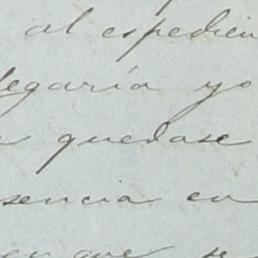 al espedien
legaría yo
quedase
sencia en
en que se